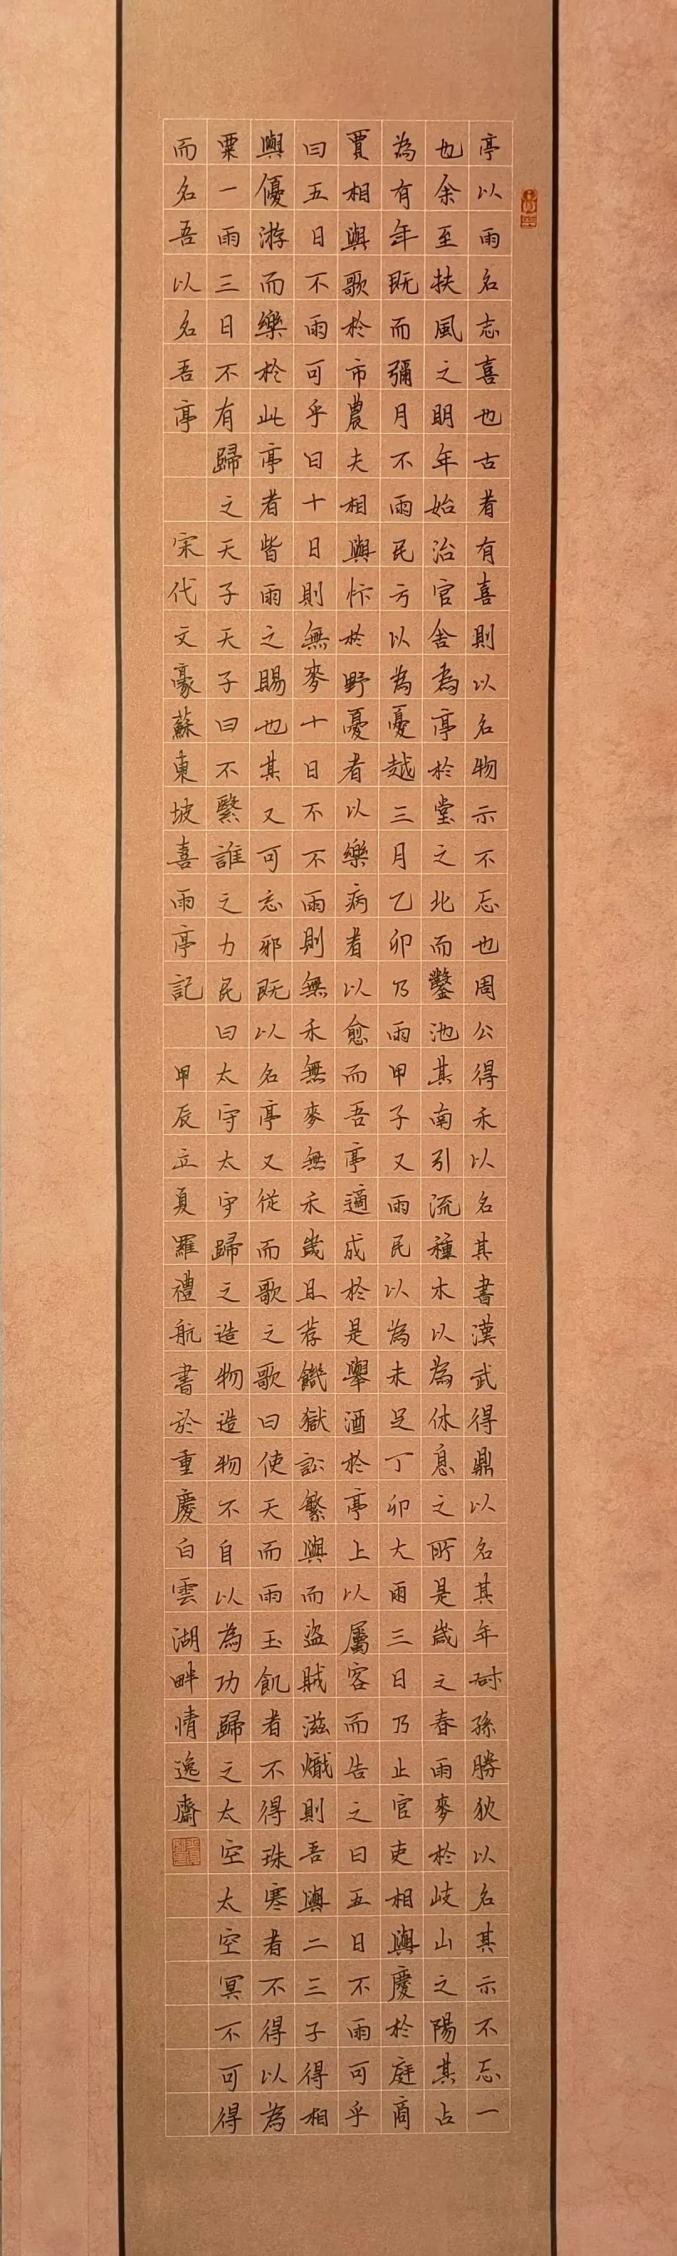 亭以雨名志喜也古者有喜則以名物示不忘也周公得禾以名其書漢武得鼎以名其年叔孫勝狄以名其示不忘一
也余至扶風之明年始治官舍為亭於堂之北而鑿池其南引流種木以為休息之所是歲之春雨麥於岐山之陽其占
為有年既而彌月不雨民方以為憂越三月乙卯乃雨甲子又雨民以為未足丁卯大雨三日乃止官吏相與慶於庭商
賈相與歌於市農夫相與忭於野憂者以樂病者以愈而吾亭適成於是舉酒於亭上以屬客而告之曰五日不雨可乎
曰五日不雨可乎曰十日則無麥十日不不雨則無禾無麥無禾歲且荐饑獄訟繁興而盜賊滋熾則吾與二三子得相
與優游而樂於此亭者皆雨之賜也其又可忘邪既以名亭又從而歌之歌曰使天而雨玉飢者不得珠寒者不得以為
粟一雨三日不有歸之天子天子曰不繄誰之力民曰太守太守歸之造物造物不自以為功歸之太空太空冥不可得
而名吾以名吾亭 宋代文豪蘇東坡喜雨亭記 甲辰立夏羅禮航書於重慶白雲湖畔情逸齋